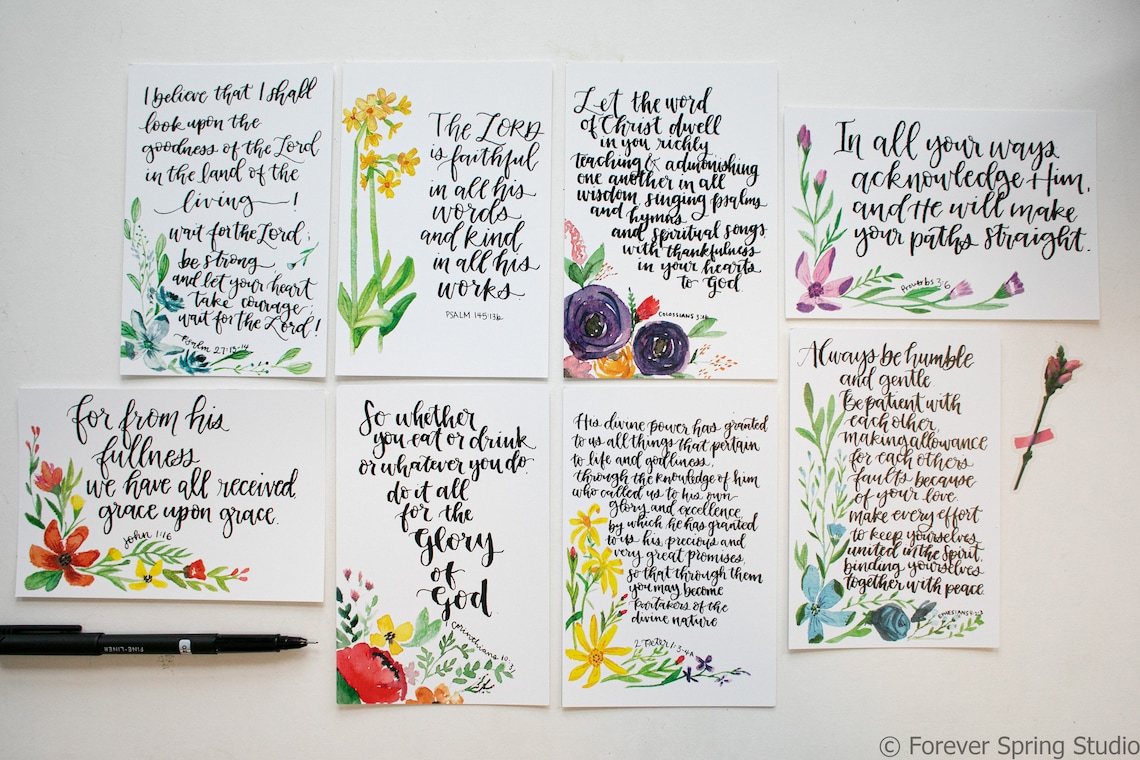 I believe that I shall
look upon the
goodness of the Lord
in the land of the
living!
wait for the Lord;
be strong
and let your heart
take courage
wait for the Lord!
Psalm 27:13-14
The LORD
is faithful
in all his
words
and kind
in all his
works.
PSALM 145:13b
Let the word
of Christ dwell
in you richly
teaching & admonishing
one another in all
wisdom, singing psalms
and hymns
and spiritual songs
with thankfulness
in your hearts
to God.
COLOSSIANS 3:16
In all your ways
acknowledge Him,
and He will make
your paths straight.
Proverbs 3:6
For from his
fullness
we have all received,
grace upon grace.
John 1:16
So whether
you eat or drink
or whatever you do
do it all
for the
Glory
of
God.
1 Corinthians 10:31
His divine power has granted
to us all things that pertain
to life and godliness,
through the knowledge of him
who called us to his own
glory and excellence,
by which he has granted
to us his precious and
very great promises,
so that through them
you may become
partakers of the
divine nature
2 Peter 1:3-4A
Always be humble
and gentle
Be patient with
each other,
making allowance
for each others
faults because
of your love.
make every effort
to keep yourselves
united in the Spirit,
binding yourselves
together with peace.
EPHESIANS 4:2-3
FINE-LINER
© Forever Spring Studio